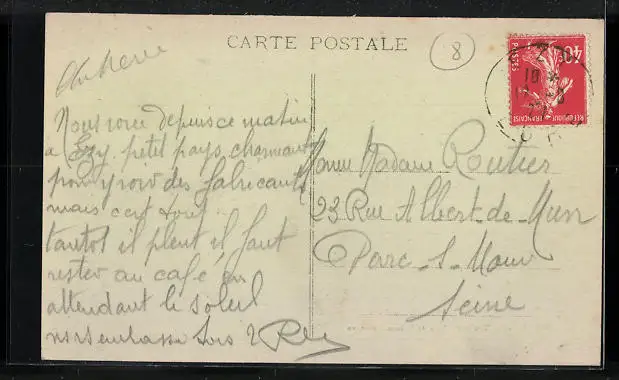 CARTE POSTALE
8
Nous voici depuis ce matin
a Ezy petit pays charmant
pour y voir des fabricants
mais c'est tout
tantot il pleut il faut
rester au café en
attendant le soleil
Madame Routier
23 Rue Albert de Mun
Parc-S-Maur
Seine
40c
POSTES
REPUBLIQUE FRANCAISE